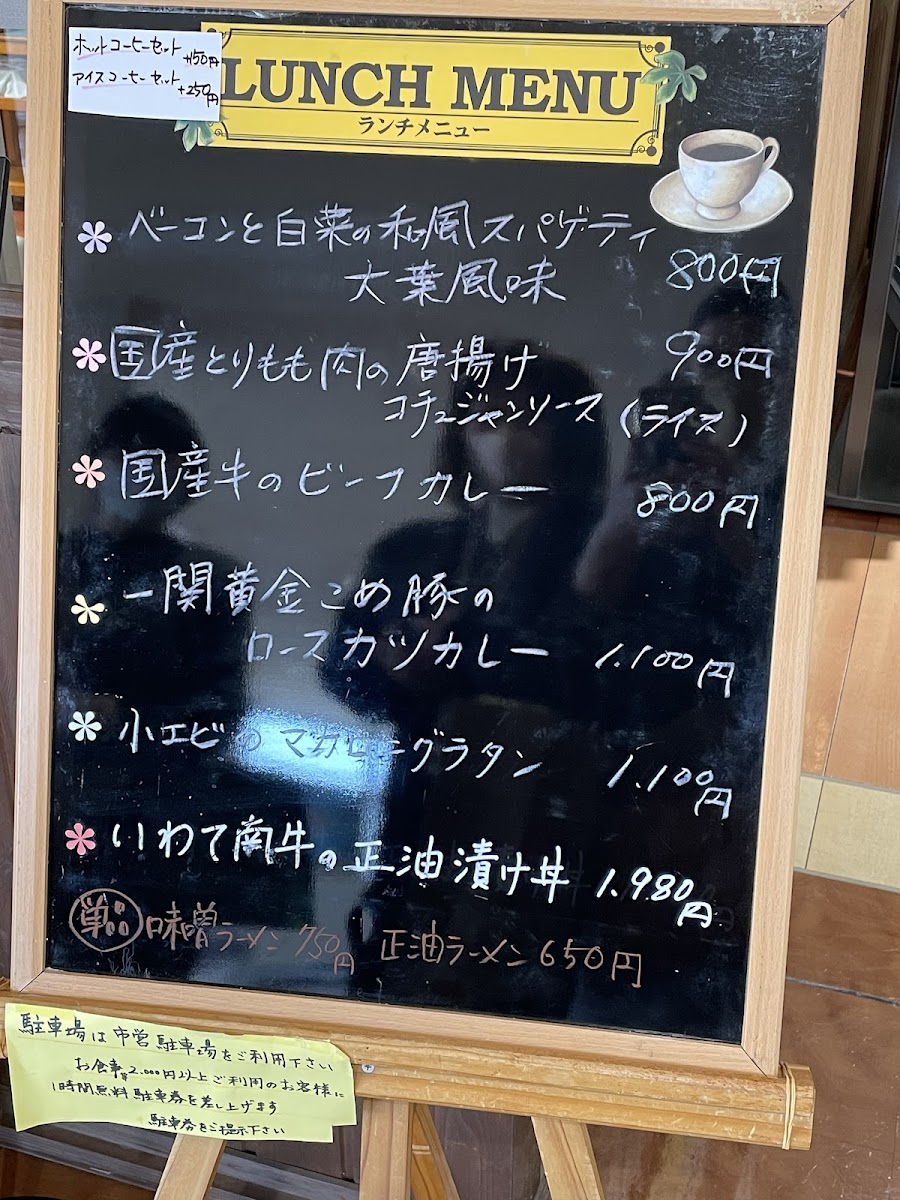 ホットコーヒーセット +150円
アイスコーヒーセット +250円
LUNCH MENU
ランチメニュー
ベーコンと白菜の和風スパゲティ
大葉風味 800円
国産とりもも肉の唐揚げ 900円
コチュジャンソース(ライス)
国産牛のビーフカレー 800円
一関黄金こめ豚の
ロースカツカレー 1.100円
小エビのマカロニグラタン 1.100円
いわて南牛の正油漬け丼 1.980円
単品 味噌ラーメン 750円 正油ラーメン 650円
駐車場は市営駐車場をご利用下さい
お食事¥2.000円以上ご利用のお客様に
1時間無料駐車券を差し上げます
駐車券をご提示下さい